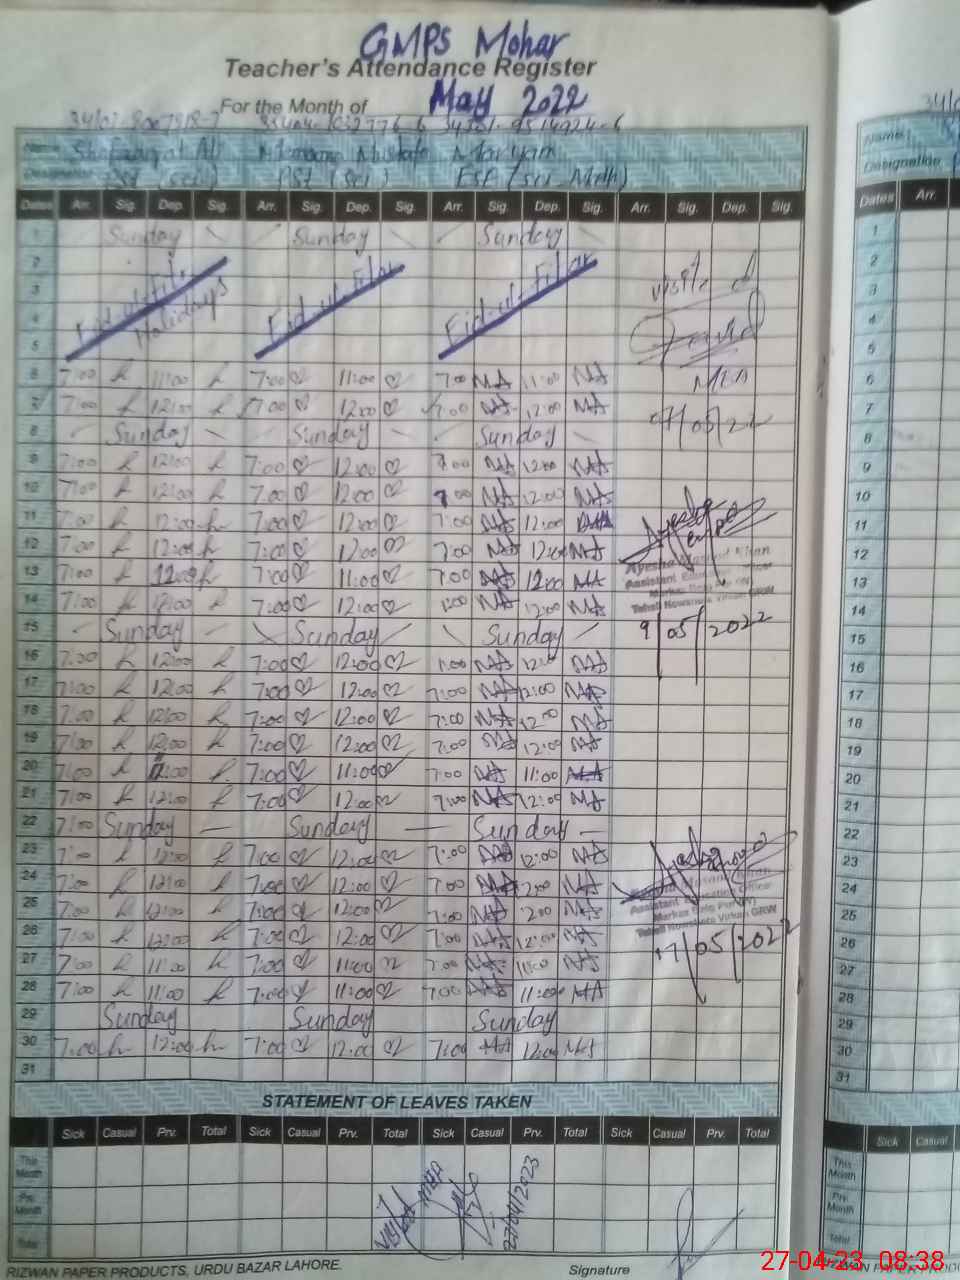 GMPS Mohar
Teacher's Attendance Register
For the Month of May 2022
Name
Designation
Maryam
PST (sci) EST (sci Math)
Dates Arr. Sig. Dep. Sig. Arr. Sig. Dep. Sig. Arr. Sig. Dep. Sig. Arr. Sig. Dep. Sig.
1 Sunday Sunday Sunday
2
3 Eid-ul-Fitar Eid-ul-Fitar Eid-ul-Fitar
4 Holidays
5
6 7:00 11:00 7:00 11:00 7:00 MA 11:00 MA
7 7:00 12:00 7:00 12:00 7:00 MA 12:00 MA
8 Sunday Sunday Sunday
9 7:00 12:00 7:00 12:00 7:00 MA 12:00 MA
10 7:00 12:00 7:00 12:00 7:00 MA 12:00 MA
11 7:00 12:00 7:00 12:00 7:00 MA 12:00 MA
12 7:00 12:00 7:00 12:00 7:00 MA 12:00 MA
13 7:00 12:00 7:00 11:00 7:00 MA 12:00 MA
14 7:00 12:00 7:00 12:00 7:00 MA 12:00 MA
15 Sunday Sunday Sunday
16 7:00 12:00 7:00 12:00 7:00 MA 12:00 MA
17 7:00 12:00 7:00 12:00 7:00 MA 12:00 MA
18 7:00 12:00 7:00 12:00 7:00 MA 12:00 MA
19 7:00 12:00 7:00 12:00 7:00 MA 12:00 MA
20 7:00 11:00 7:00 11:00 7:00 MA 11:00 MA
21 7:00 12:00 7:00 12:00 7:00 MA 12:00 MA
22 7:00 Sunday Sunday Sunday
23 7:00 12:00 7:00 12:00 7:00 MA 12:00 MA
24 7:00 12:00 7:00 12:00 7:00 MA 12:00 MA
25 7:00 12:00 7:00 12:00 7:00 MA 12:00 MA
26 7:00 12:00 7:00 12:00 7:00 MA 12:00 MA
27 7:00 11:00 7:00 11:00 7:00 MA 11:00 MA
28 7:00 11:00 7:00 11:00 7:00 MA 11:00 MA
29 Sunday Sunday Sunday
30 7:00 12:00 7:00 12:00 7:00 MA 12:00 MA
31
visited
MEA
07/05/22
Ayesha Masood Khan
Assistant Education Officer
Tehsil Nowshera Virkan GRW
9/05/2022
Assistant Education Officer
Tehsil Nowshera Virkan GRW
17/05/2022
STATEMENT OF LEAVES TAKEN
Sick Casual Prv. Total Sick Casual Prv. Total Sick Casual Prv. Total Sick Casual Prv. Total
This Month
Prv. Month
Total
MEA
27/04/2023
RIZWAN PAPER PRODUCTS, URDU BAZAR LAHORE.
Signature
Name
Designation
Dates Arr.
1
2
3
4
5
6
7
8
9
10
11
12
13
14
15
16
17
18
19
20
21
22
23
24
25
26
27
28
29
30
31
Sick Casual
This Month
Prv. Month
Total
27-04-23 08:38